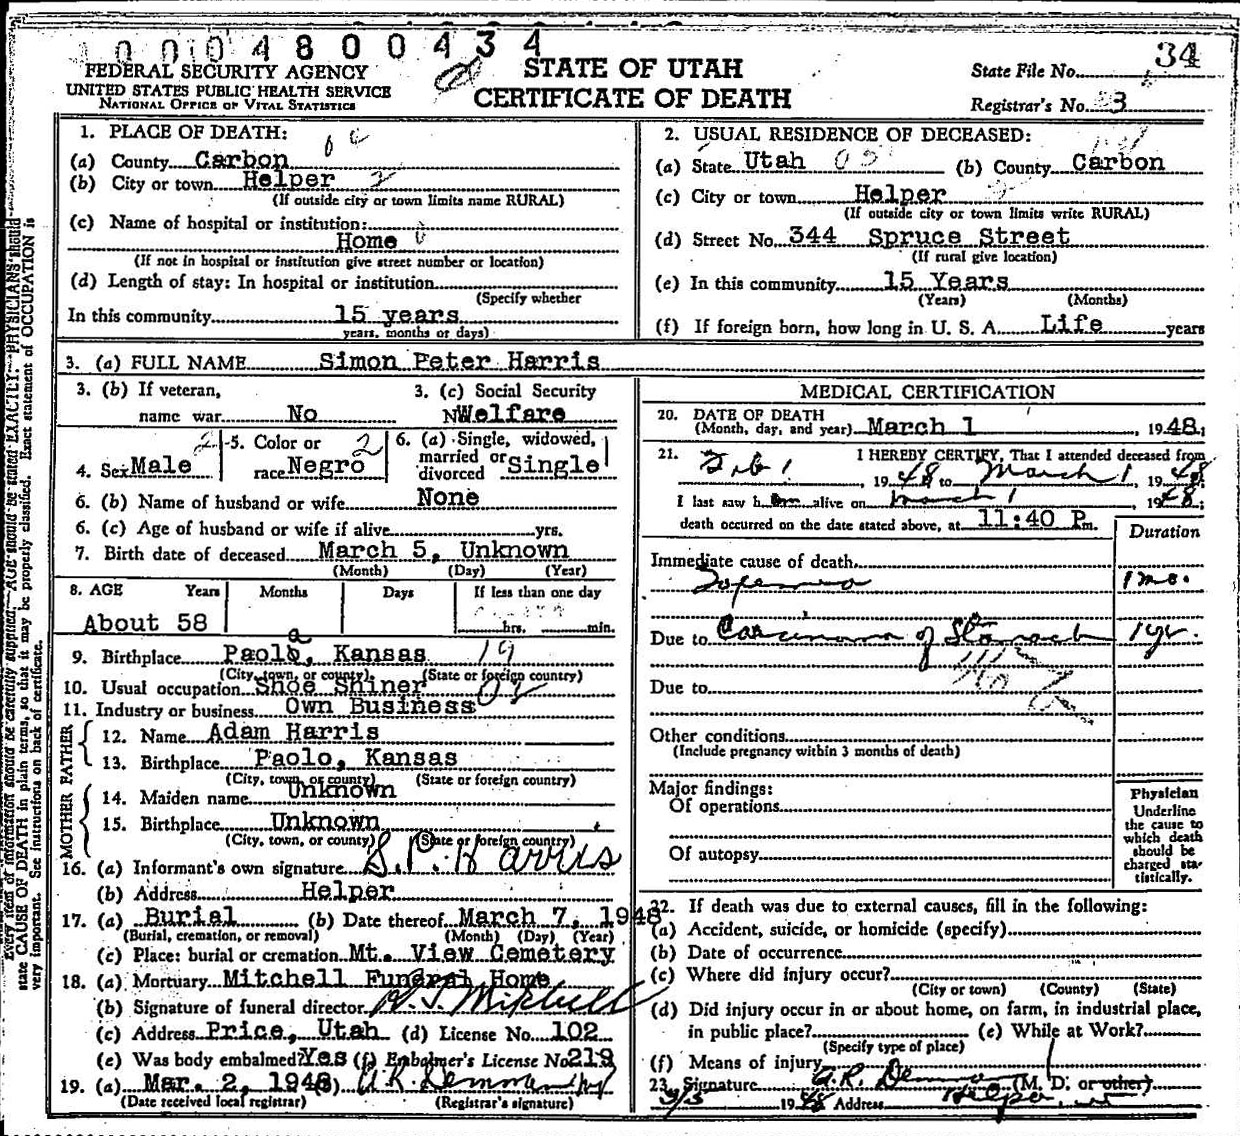 0004800434
34
FEDERAL SECURITY AGENCY
UNITED STATES PUBLIC HEALTH SERVICE
NATIONAL OFFICE OF VITAL STATISTICS
STATE OF UTAH
CERTIFICATE OF DEATH
State File No.
Registrar's No. 3
1. PLACE OF DEATH:
(a) County Carbon
(b) City or town Helper
(If outside city or town limits name RURAL)
(c) Name of hospital or institution:
Home
(If not in hospital or institution give street number or location)
(d) Length of stay: In hospital or institution
(Specify whether
In this community 15 years
years, months or days)
2. USUAL RESIDENCE OF DECEASED:
(a) State Utah 05 (b) County Carbon
(c) City or town Helper
(If outside city or town limits write RURAL)
(d) Street No. 344 Spruce Street
(If rural give location)
(e) In this community 15 Years
(Years) (Months)
(f) If foreign born, how long in U. S. A. Life years
3. (a) FULL NAME Simon Peter Harris
3. (b) If veteran, name war No
3. (c) Social Security NWelfare
4. Sex Male 2
5. Color or race Negro 2
6. (a) Single, widowed, married or divorced Single
6. (b) Name of husband or wife None
6. (c) Age of husband or wife if alive yrs.
7. Birth date of deceased March 5, Unknown
(Month) (Day) (Year)
8. AGE Years Months Days If less than one day
About 58 hrs. min.
9. Birthplace Paolo, Kansas 19
a
(City, town, or county) (State or foreign country)
10. Usual occupation Shoe Shiner
11. Industry or business Own Business
FATHER
12. Name Adam Harris
13. Birthplace Paolo, Kansas
(City, town, or county) (State or foreign country)
MOTHER
14. Maiden name Unknown
15. Birthplace Unknown
(City, town, or county) (State or foreign country)
16. (a) Informant's own signature S. P. Harris
(b) Address Helper
17. (a) Burial (b) Date thereof March 7, 1948
(Burial, cremation, or removal) (Month) (Day) (Year)
(c) Place: burial or cremation Mt. View Cemetery
18. (a) Mortuary Mitchell Funeral Home
(b) Signature of funeral director Mitchell
(c) Address Price, Utah (d) License No. 102
(e) Was body embalmed? Yes (f) Embalmer's License No. 219
19. (a) Mar. 2, 1948
(Date received local registrar) (Registrar's signature)
MEDICAL CERTIFICATION
20. DATE OF DEATH
(Month, day, and year) March 1, 1948;
21. I HEREBY CERTIFY, That I attended deceased from
Feb 1, 1948 to March 1, 1948;
I last saw him alive on March 1 1948;
death occurred on the date stated above, at 11:40 P.m.
Duration
Immediate cause of death
1 mo.
Due to Carcinoma of Stomach 1 yr.
Due to
Other conditions
(Include pregnancy within 3 months of death)
Major findings:
Of operations
Of autopsy
Physician
Underline
the cause to
which death
should be
charged sta-
tistically.
22. If death was due to external causes, fill in the following:
(a) Accident, suicide, or homicide (specify)
(b) Date of occurrence
(c) Where did injury occur?
(City or town) (County) (State)
(d) Did injury occur in or about home, on farm, in industrial place,
in public place? (e) While at Work?
(Specify type of place)
(f) Means of injury
23. Signature (M. D. or other)
1948 Address Helper
Every item of information should be carefully supplied. AGE should be stated EXACTLY. PHYSICIANS should
state CAUSE OF DEATH in plain terms, so that it may be properly classified. Exact statement of OCCUPATION is
very important. See instructions on back of certificate.